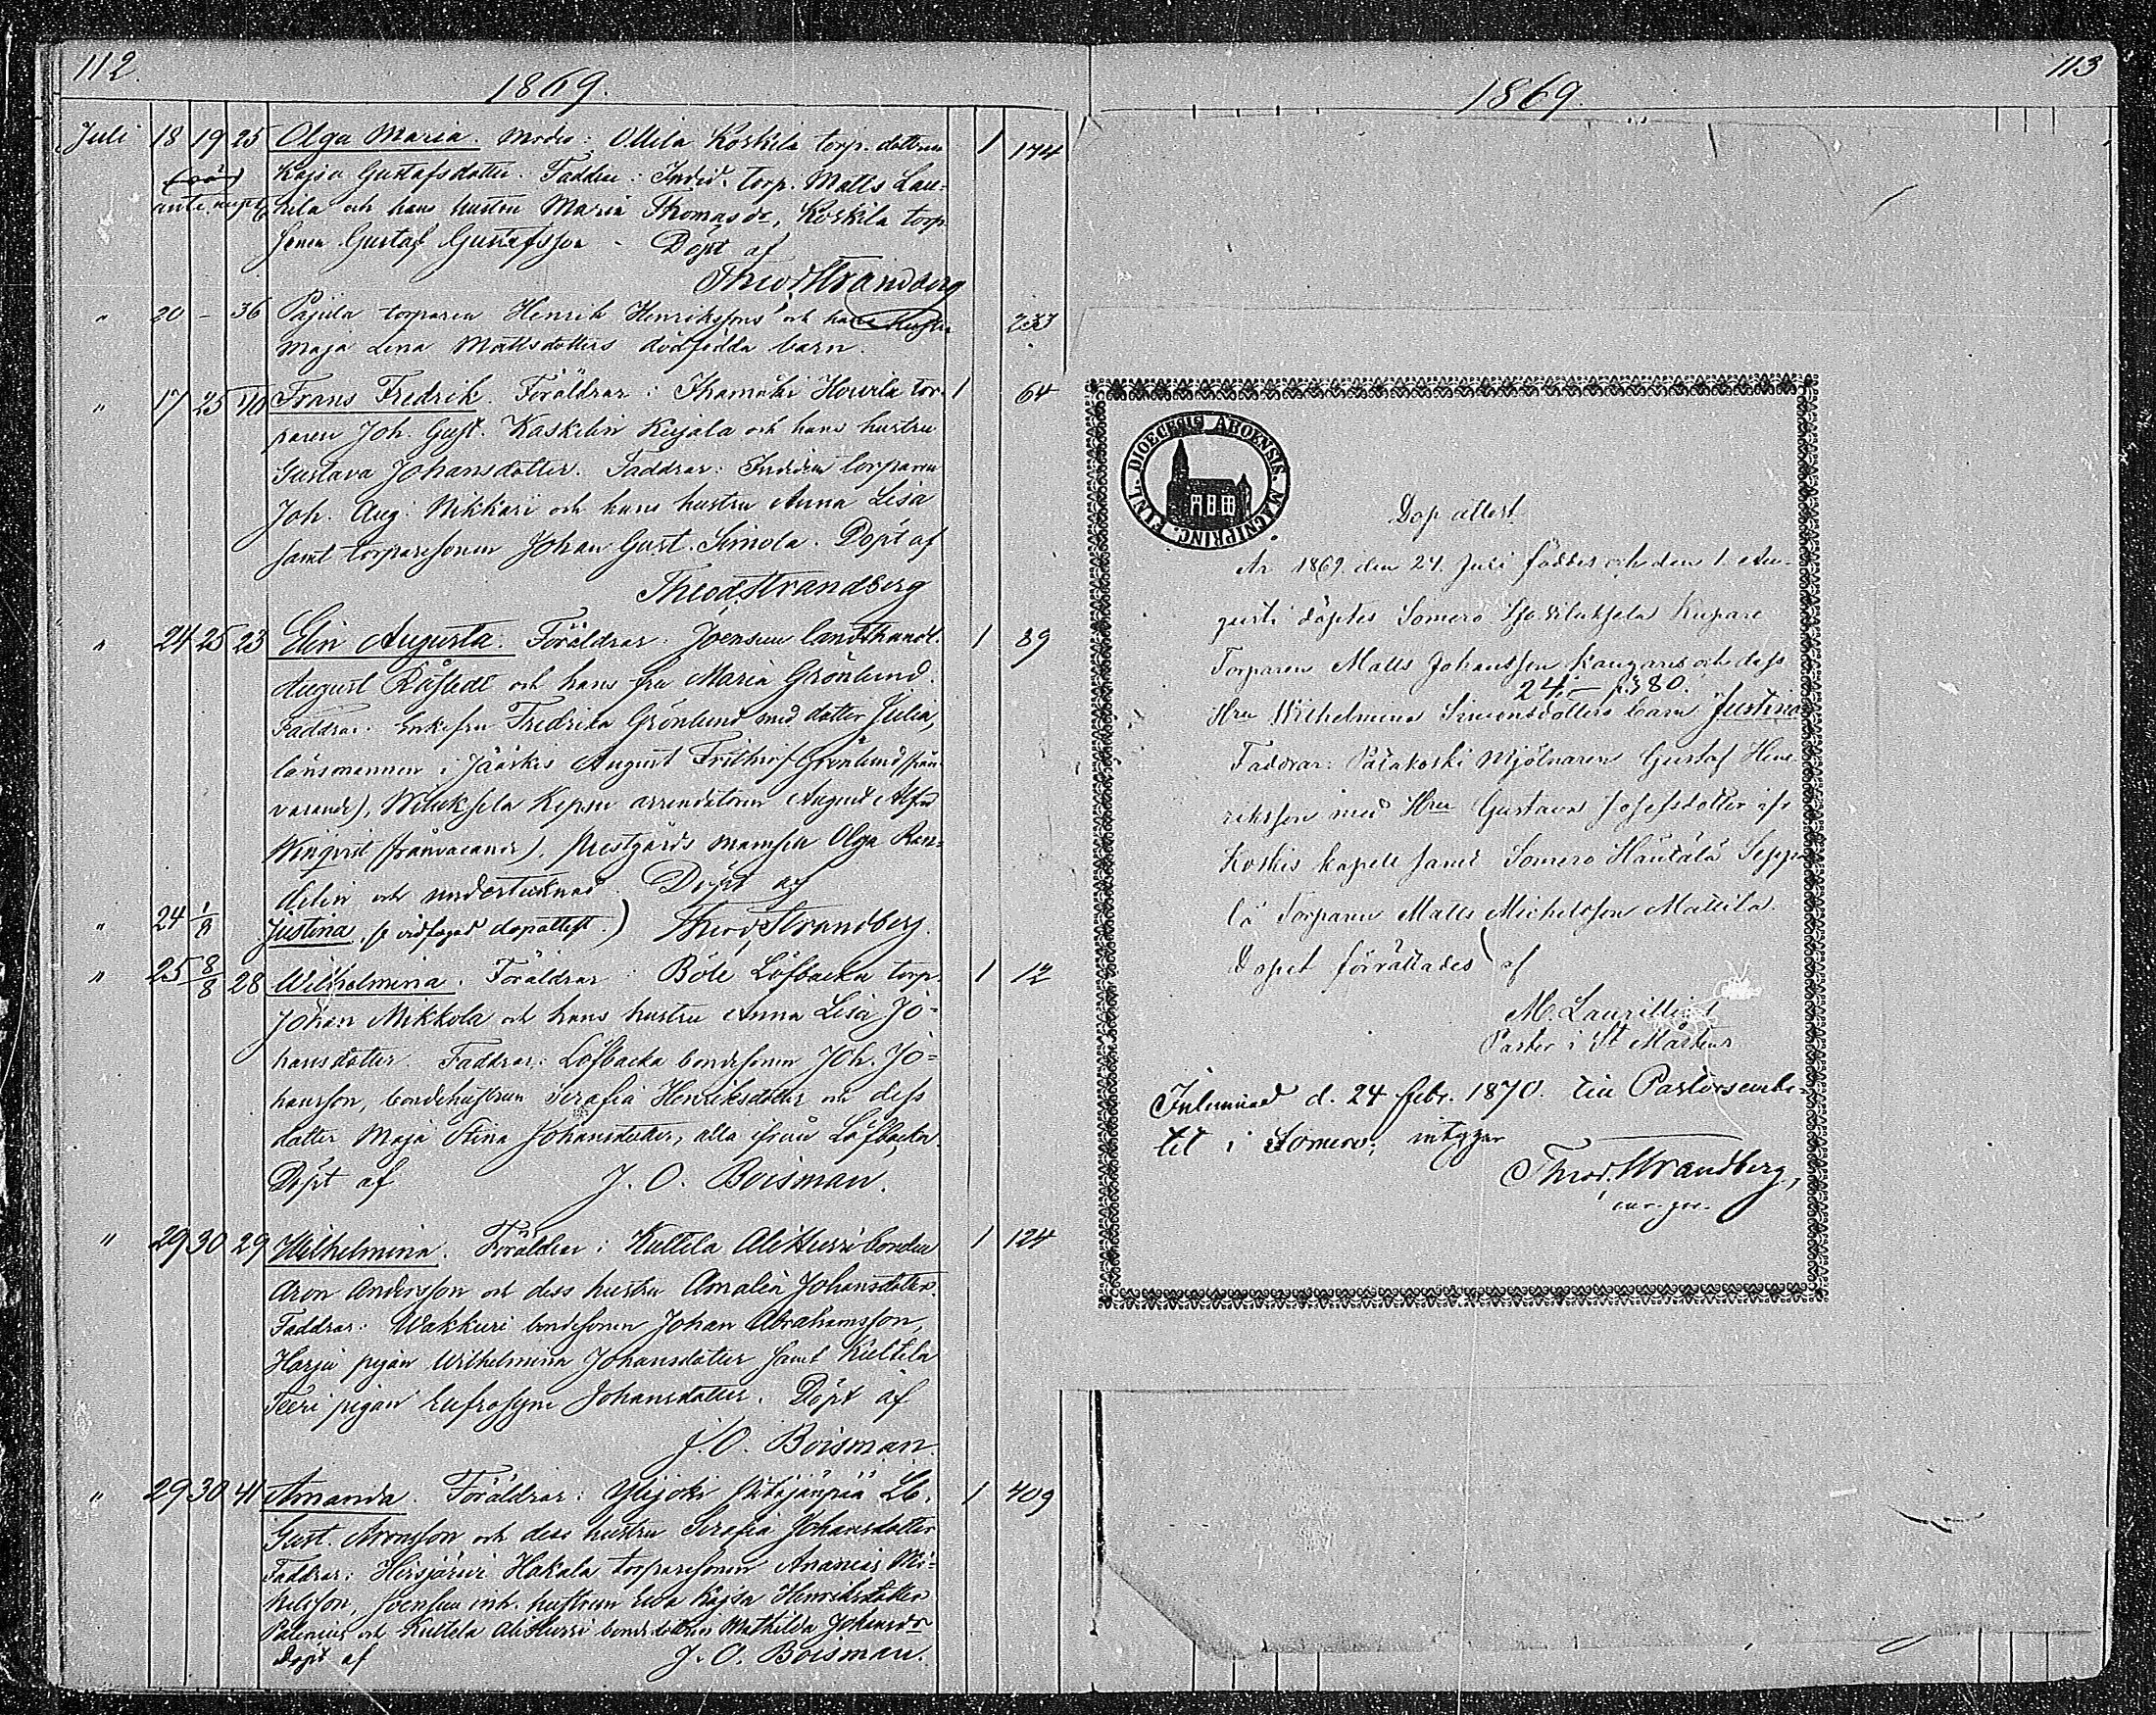 112.
1869.
Juli 18 19 25 Olga Maria. Moder: Ollila Koskila torp. dottren 1 174
Kajsa Gustafsdotter. Faddrar: torp. Matts Lau-
ante nupt. hela och hans hustru Maria Thomasdr, Koskila torp.
sonen Gustaf Gustafsson - Döpt af
Theod Strandberg
" 20 - 36 Pajula torparen Henrik Henrikssons och hans hustru 233
Maja Lena Mattsdotters dödfödda barn.
" 17 25 Frans Fredrik. Föräldrar: Hovila tor- 1 64
paren Joh. Gust. Kaskelin Kujala och hans hustru
Gustava Johansdotter. Faddrar: torparen
Joh. Aug. Nikkari och hans hustru Anna Lisa
samt torparesonen Johan Gust. Simola. Döpt af
Theod. Strandberg
" 24 25 23 Elin Augusta. Föräldrar: Joensuu landthandl. 1 89
August Råstedt och hans fru Maria Grönlund.
Faddrar: Enkefru Fredrika Grönlund med dotter Julia,
länsmannen i Jääskis August Frithiof Grönlund (från-
varande), Wiluksela Kipsu arrendatorn August Alfred
Winqvist (frånvarande), Prestgårds mamsell Olga Ran-
delin och undertecknad. Döpt af
" 24 1/8 Justina, (se vidfogad dopattest.) Theod Strandberg.
" 25 8/8 28 Wilhelmina. Föräldrar: Böle Löfbacka torp. 1 12
Johan Mikkola och hans hustru Anna Lisa Jo-
hansdotter. Faddrar: Löfbacka bondesonen Joh. Jo=
hansson, bondehustrun Serafia Henriksdotter och dess
dotter Maja Stina Johansdotter, alla ifrån Löfbacka.
Döpt af J. O. Boisman.
" 29 30 29 Wilhelmina. Föräldrar: Kultela Ali Hurri bonden 1 124
Aron Andersson och dess hustru Amalia Johansdotter.
Faddrar: Wakkuri bondesonen Johan Abrahamsson,
Harju pigan Wilhelmina Johansdotter samt Kultela
Teeri pigan Eufrosyne Johansdotter. Döpt af
J. O. Boisman.
" 29 30 41 Amanda. Föräldrar: Ylijoki Pitkäjänpää 1 409
Gust. Aronsson och dess hustru Serafia Johansdotter
Faddrar: Hirsjärvi Hakala torparesonen Ananias Mi-
kelsson, Joensuu inh. hustrun Eva Kajsa Henriksdotter
Palenius och Kultela Ali Hurri bondedottren Mathilda Johansdr
Döpt af J. O. Boisman.
113
1869.
DIOECESIS ABOENSIS. MAGNI PRINC. FINL.
Dop attest.
År 1869 den 24. Juli föddes och den 1. Au-
gusti döptes Somero Wiluksela Kupare
Torparen Matts Johansson Kangares och dess
24.- p. 380.
Hru Wilhelmina Simonsdotters barn Justina
Faddrar: Patakoski Mjölnaren Gustaf Hen-
riksson med Hru Gustava Josefsdotter ifr
Koskis kapell samt Somero Häntälä Seppä
lä Torparen Matts Michelsson Mattila.
Dopet förrättades af
M. Laurillius
Pastor i St Mårtens
Inlemnad d. 24 febr. 1870. till Pastorsembe-
tet i Somero; intygar
Theod. Strandberg,